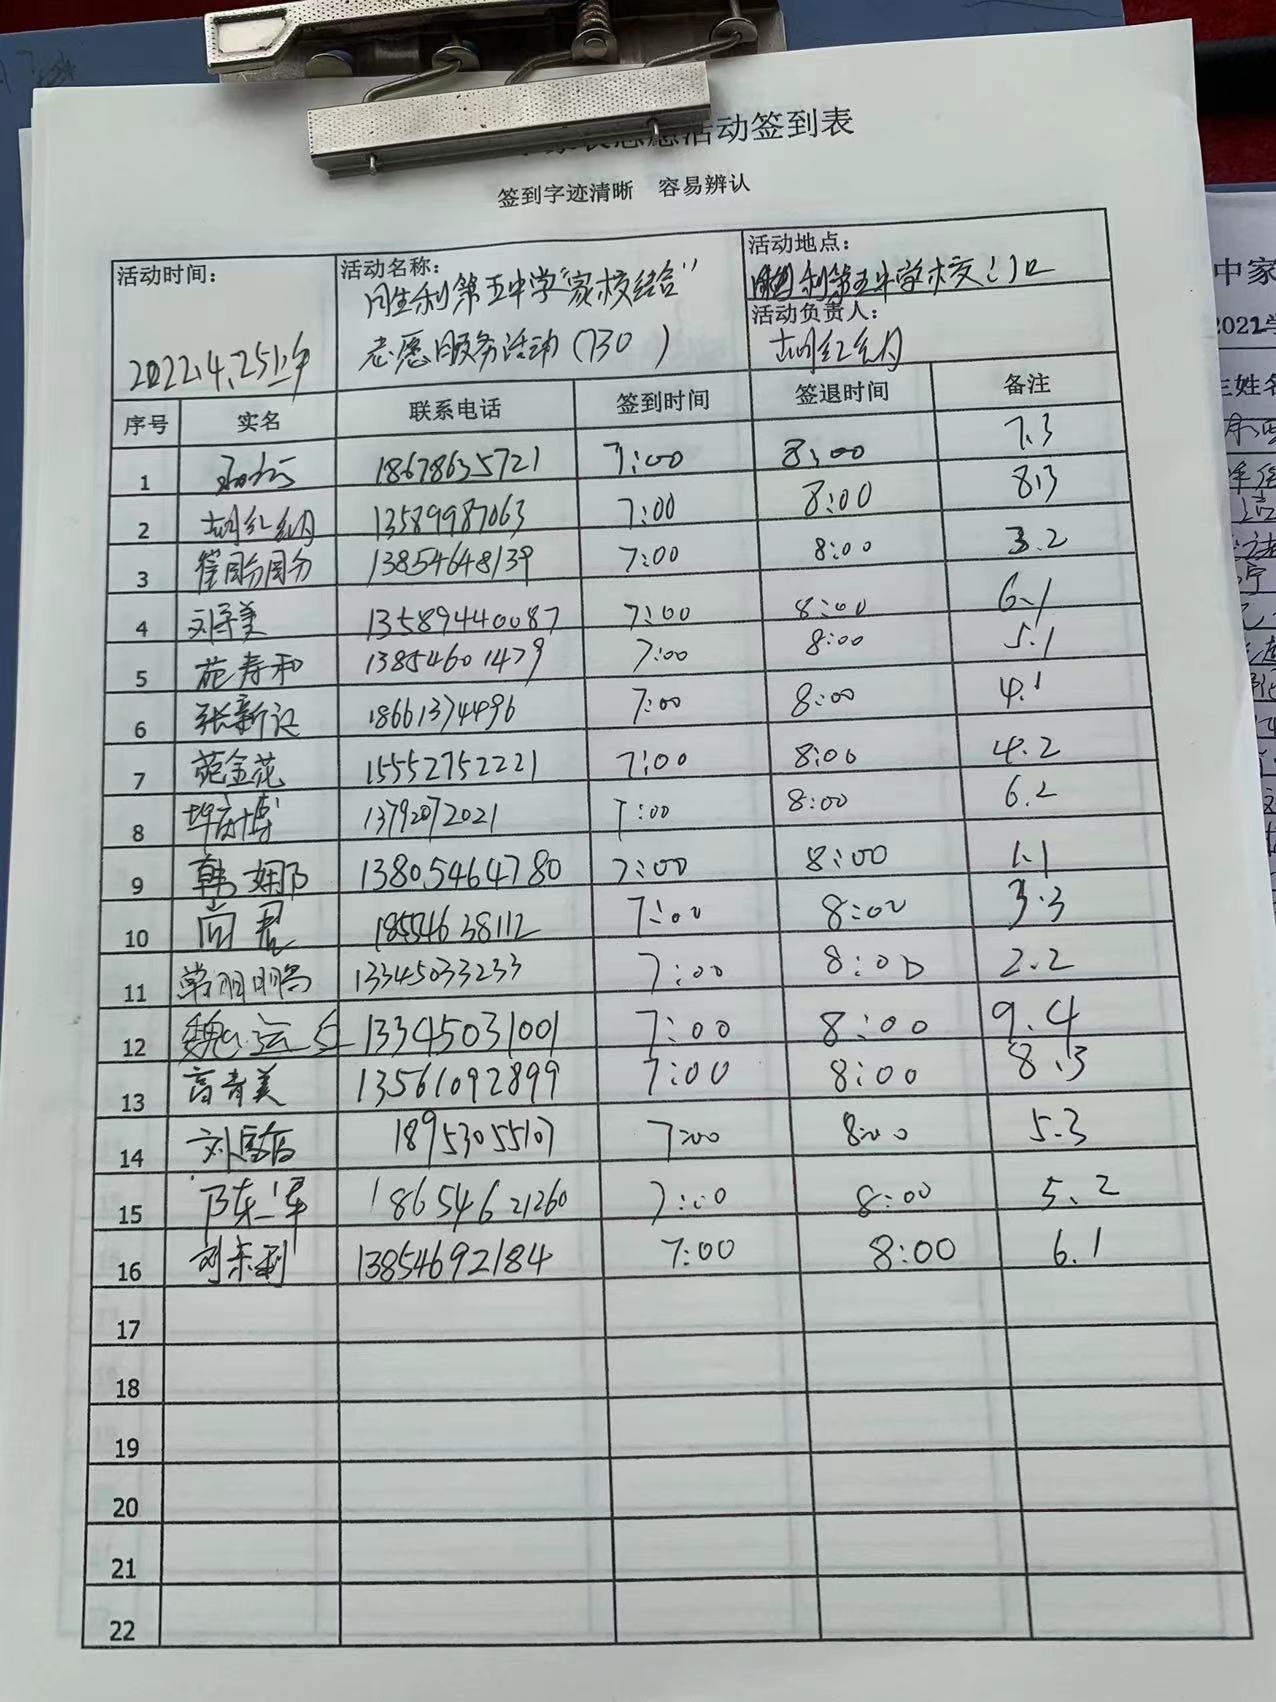 活动签到表
签到字迹清晰 容易辨认
活动时间:
2022.4.25上午
活动名称:
胜利第五中学"家校结合"
志愿服务活动(730)
活动地点:
胜利第五中学校门口
活动负责人:
胡红纳
序号 实名 联系电话 签到时间 签退时间 备注
1 18678635721 7:00 8:00 7.3
2 胡红纳 13589987063 7:00 8:00 8.3
3 崔圆圆 13854648139 7:00 8:00 3.2
4 刘泽美 135894440087 7:00 8:00 6.1
5 苑寿和 13854601479 7:00 8:00 5.1
6 张新江 18661374496 7:00 8:00 4.1
7 苑金花 15552752221 7:00 8:00 4.2
8 13792072021 7:00 8:00 6.2
9 韩娜 13805464780 7:00 8:00 1.1
10 尚君 18554638112 7:00 8:00 3.3
11 常 13345033233 7:00 8:00 2.2
12 魏运 13345031001 7:00 8:00 9.4
13 高青美 13561092899 7:00 8:00 8.3
14 刘 18953055107 7:00 8:00 5.3
15 陈军 18654621260 7:00 8:00 5.2
16 刘东利 13854692184 7:00 8:00 6.1
17
18
19
20
21
22
中家
2022学
生姓名